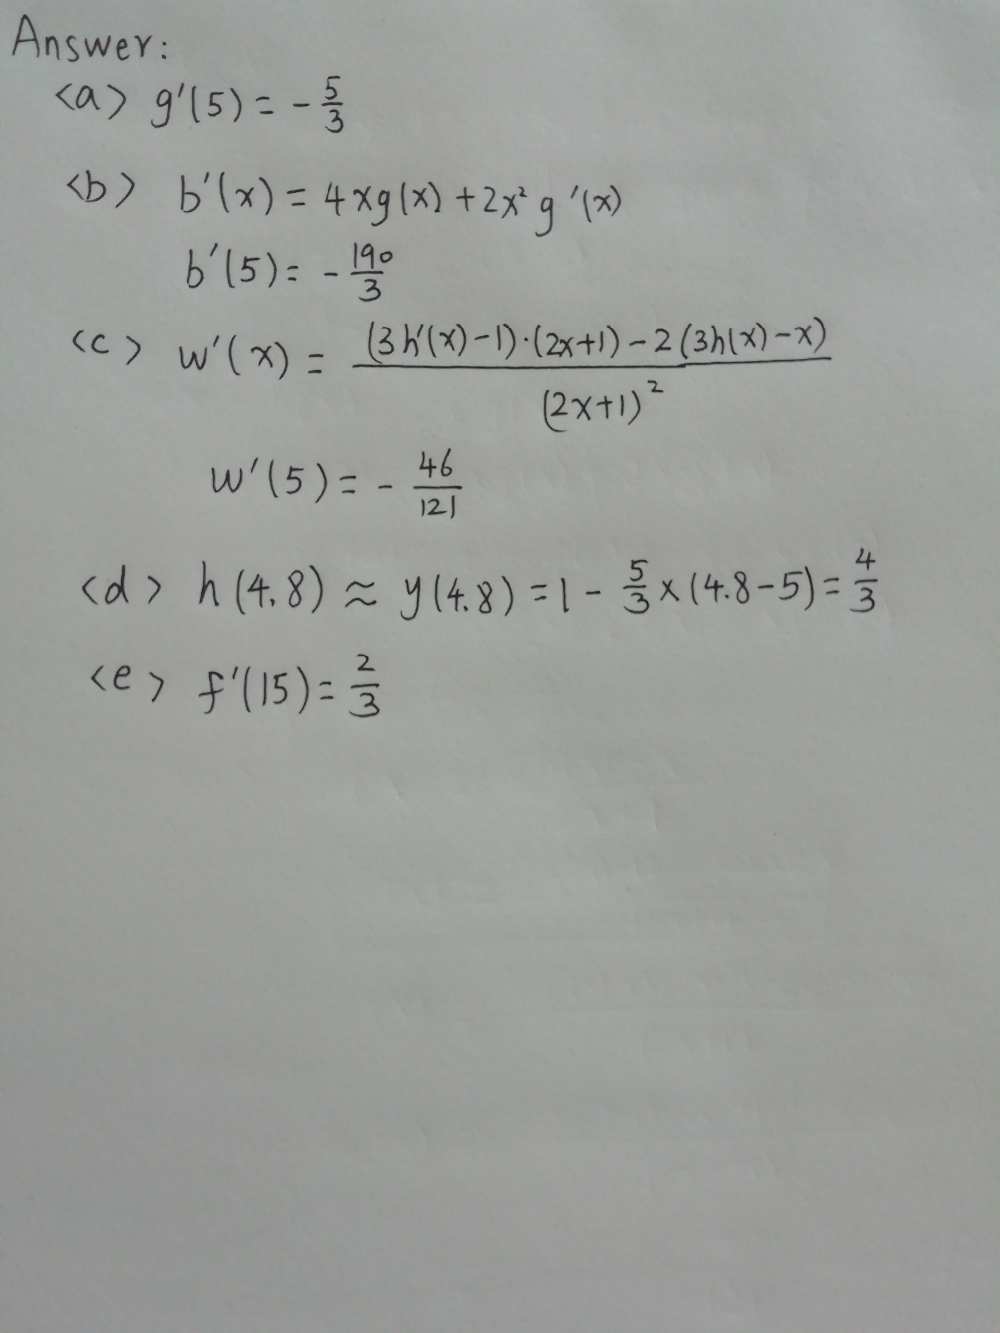 Answer:
<a> g'(5) = - 5/3
<b> b'(x) = 4xg(x) + 2x² g'(x)
b'(5) = - 190/3
<c> w'(x) = ((3h'(x)-1)·(2x+1) - 2(3h(x)-x))/(2x+1)²
w'(5) = - 46/121
<d> h(4.8) ≈ y(4.8) = 1 - 5/3 × (4.8-5) = 4/3
<e> f'(15) = 2/3